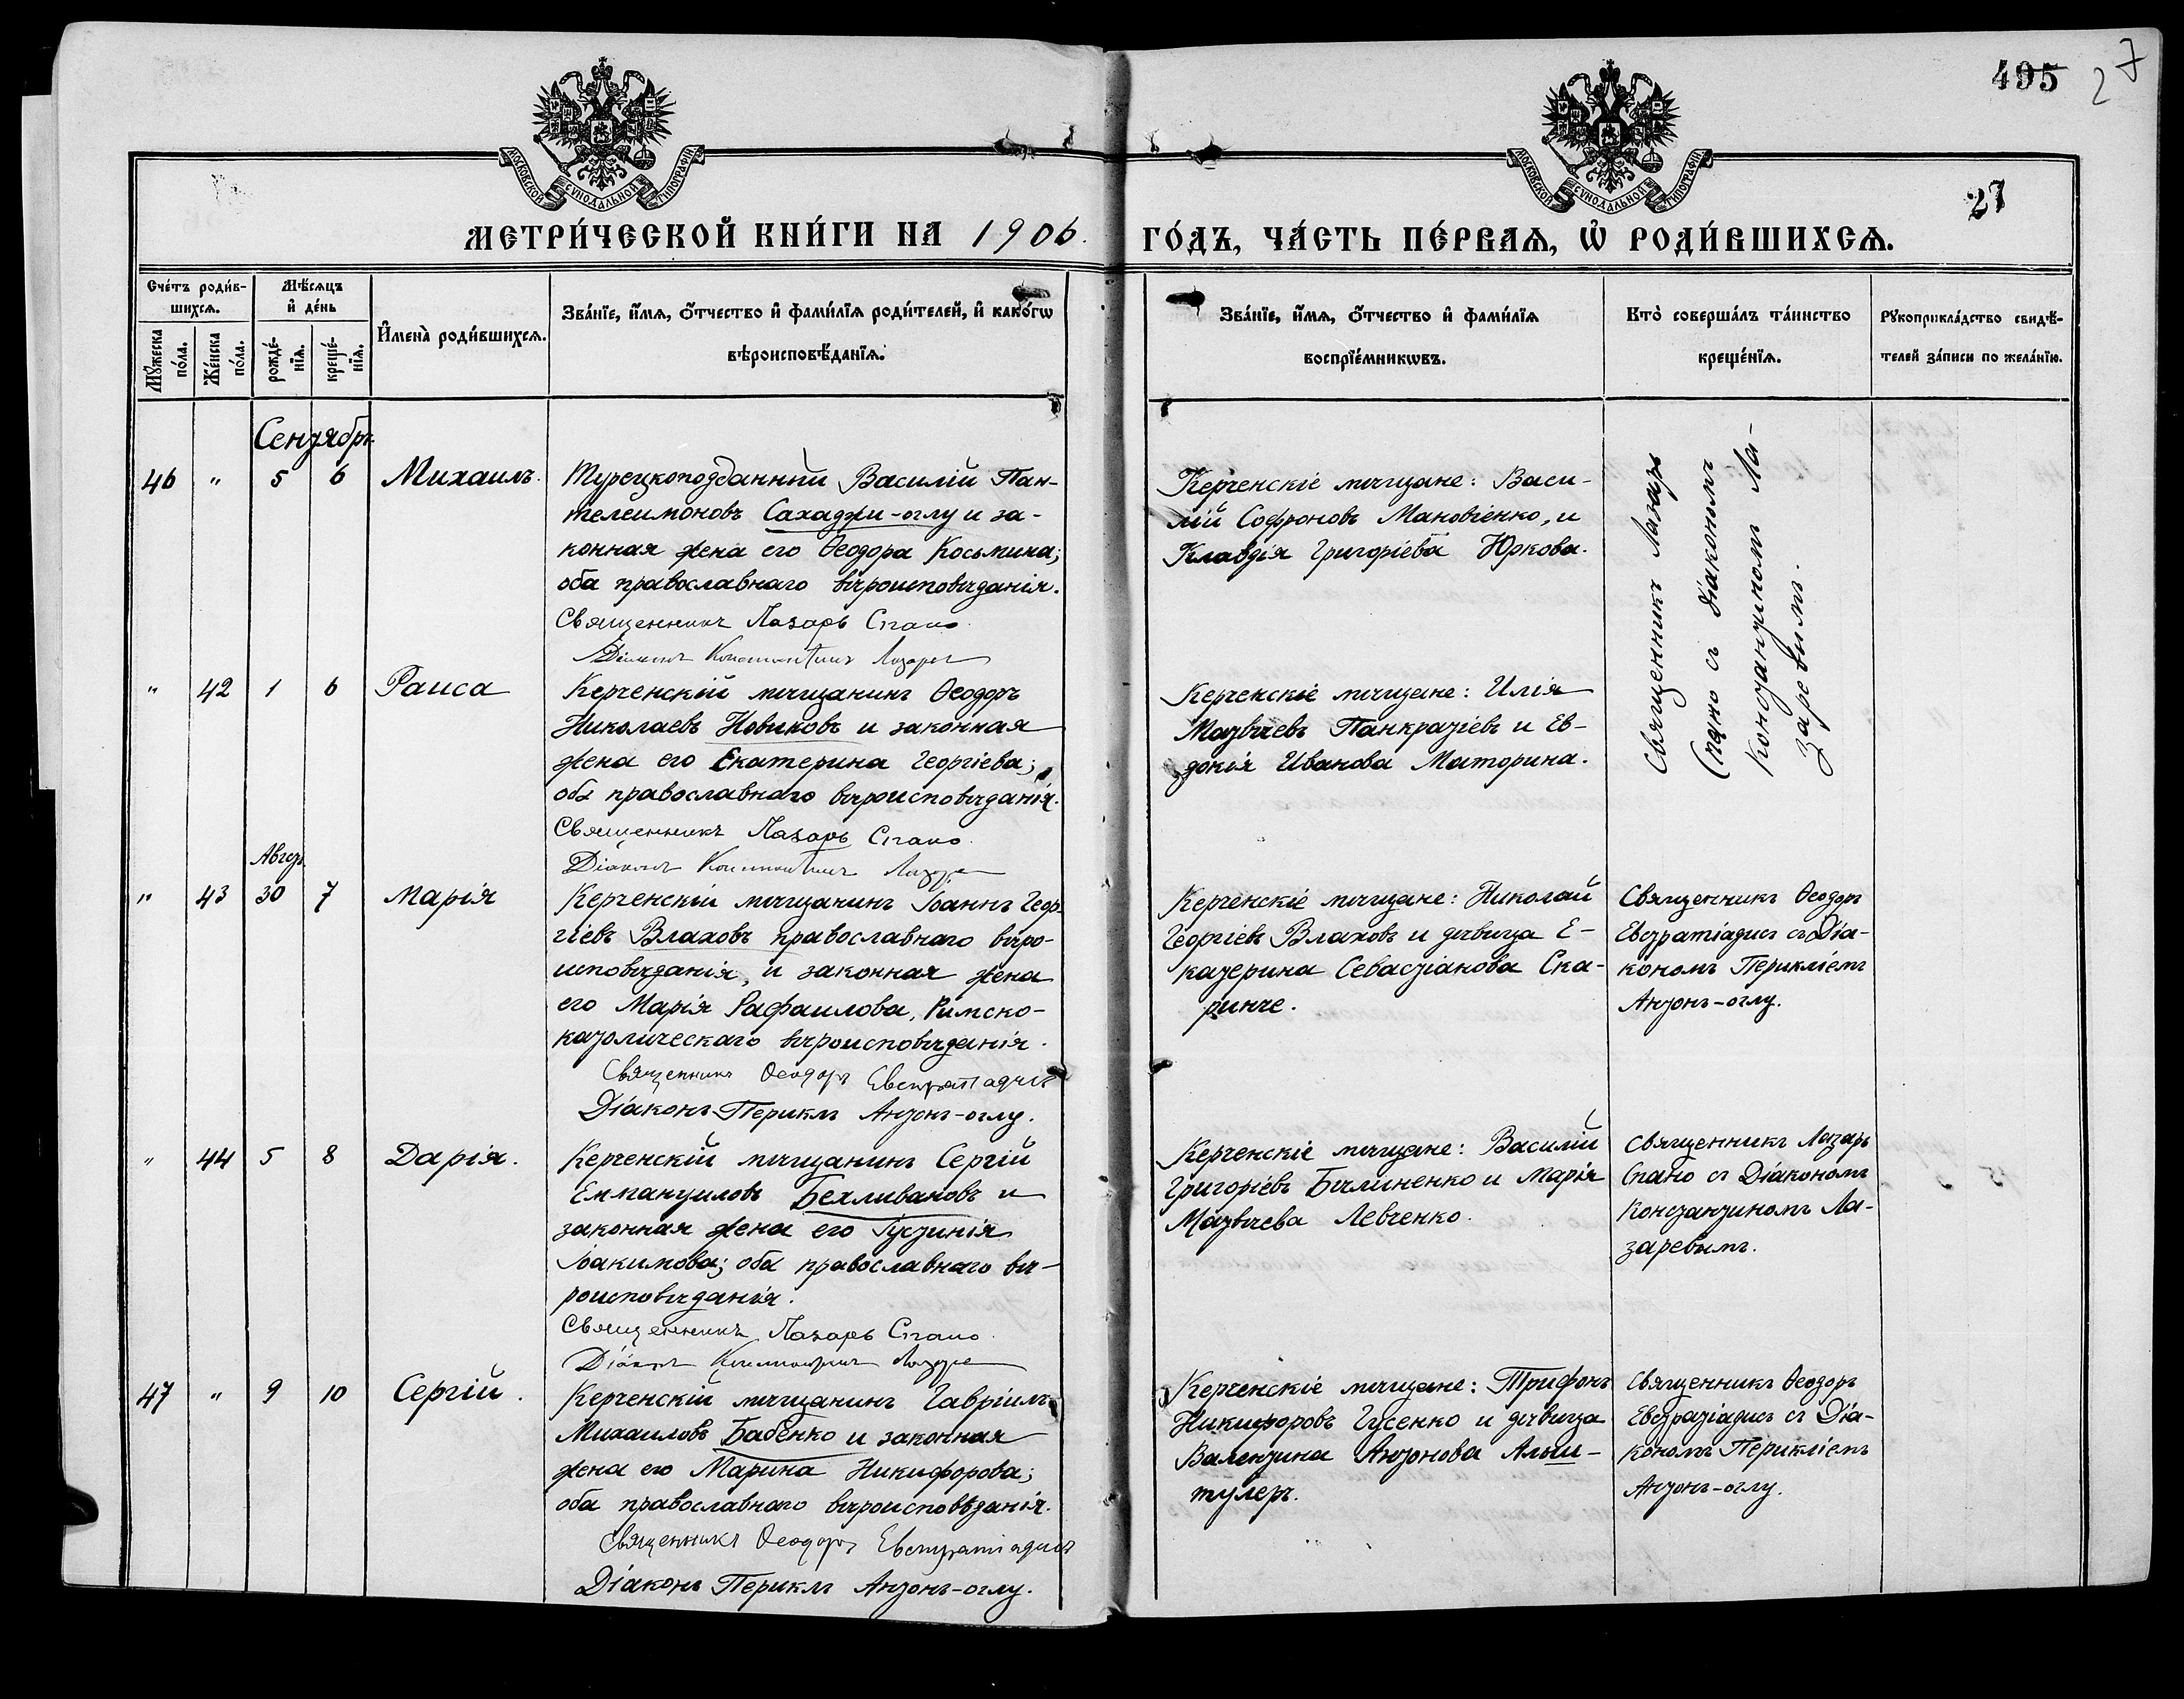 495
27
МОСКОВСКОЙ СѴНОДАЛЬНОЙ ТИПОГРАФІИ
МОСКОВСКОЙ СѴНОДАЛЬНОЙ ТИПОГРАФІИ
27
МЕТРИ́ЧЕСКОЙ КНИ́ГИ НА 1906. ГО́ДЪ, ЧА́СТЬ ПЕ́РВАѦ, Ѡ҆ РОДИ́ВШИХСѦ.
Сче́тъ роди́в-
шихсѧ.
Мꙋ́жеска по́ла.
Же́нска по́ла.
Мѣ́сѧцъ
и҆ де́нь
рожде́-
нїѧ.
креще́-
нїѧ.
И҆мена̀ роди́вшихсѧ.
Зва́нїе, и҆́мѧ, ѻ҆́тчество и҆ фами́лїѧ роди́телей, и҆ како́гѡ
вѣроисповѣ́данїѧ.
Зва́нїе, и҆́мѧ, ѻ҆́тчество и҆ фами́лїѧ
воспрїе́мникѡвъ.
Кто̀ соверша́лъ та́инство
креще́нїѧ.
Рꙋкоприкла́дство свидѣ́-
телей за́писи по жела́нїю.
Сентябрь
46 " 5 6 Михаилъ.
Турецкоподданный Василій Пан-
телеимоновъ Сахаджи-оглу и за-
конная жена его Ѳеодора Косьмина;
оба православнаго вѣроисповѣданія.
Священникъ Лазарь Спано
Діаконъ Константинъ Лазарев
Керченскіе мѣщане: Васи-
лій Софроновъ Мановіенко, и
Клавдія Григоріева Юркова.
Священникъ Лазарь
Спано съ діакономъ
Константиномъ Ла-
заревымъ.
" 42 1 6 Раиса
Керченскій мѣщанинъ Ѳеодоръ
Николаевъ Новиковъ и законная
жена его Екатерина Георгіева;
оба православнаго вѣроисповѣданія.
Священникъ Лазарь Спано.
Діаконъ Константинъ Лазарев
Керченскіе мѣщане: Илія
Матвѣевъ Панкратіевъ и Ев-
докія Иванова Маторина.
Август.
" 43 30 7 Марія
Керченскій мѣщанинъ Іоаннъ Геор-
гіевъ Влаховъ православнаго вѣро-
исповѣданія, и законная жена
его Марія Рафаилова, Римско-
католическаго вѣроисповѣданія.
Священникъ Ѳеодоръ Евстратіадисъ
Діаконъ Периклъ Антонъ-оглу.
Керченскіе мѣщане: Николай
Георгіевъ Влаховъ и дѣвица Е-
катерина Севастіанова Ска-
ринче.
Священникъ Ѳеодоръ
Евстратіадисъ съ Діа-
кономъ Перикліемъ
Антонъ-оглу.
" 44 5 8 Дарія.
Керченскій мѣщанинъ Сергій
Еммануиловъ Бехливановъ и
законная жена его Іустинія
Іоакимова; оба православнаго вѣ-
роисповѣданія.
Священникъ Лазарь Спано.
Діаконъ Константинъ Лазарев
Керченскіе мѣщане: Василій
Григоріевъ Бѣлиненко и Марія
Матвѣева Левченко.
Священникъ Лазарь
Спано съ Діакономъ
Константиномъ Ла-
заревымъ.
47 " 9 10 Сергій.
Керченскій мѣщанинъ Гавріилъ
Михаиловъ Бабенко и законная
жена его Марина Никифорова;
оба православнаго вѣроисповѣданія.
Священникъ Ѳеодоръ Евстратіадисъ
Діаконъ Периклъ Антонъ-оглу.
Керченскіе мѣщане: Трифонъ
Никифоровъ Гусенко и дѣвица
Валентина Антонова Альш-
тулеръ.
Священникъ Ѳеодоръ
Евстратіадисъ съ Діа-
кономъ Перикліемъ
Антонъ-оглу.